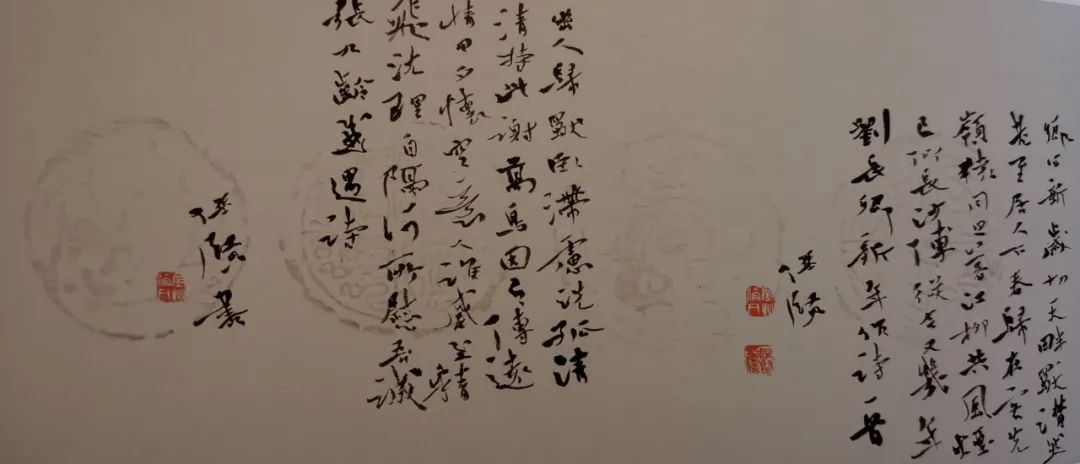 鄉心新歲切天畔獨潸然
老至居人下春歸在客先
嶺猿同旦暮江柳共風煙
已似長沙傅從今又幾年
劉長卿新年作詩一首
賢
幽人歸獨臥滯慮洗孤清
清持此謝高鳥因之傳遠
情日夕懷空意人誰感至精
飛沈理自隔何所慰吾誠
張九齡感遇詩
賢書